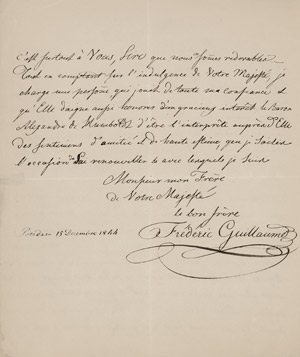 C'est surtout à Vous, Sire que nous sommes redevables.
Tout en comptant sur l'indulgence de Votre Majesté, je
charge une personne qui jouit de toute ma confiance et
qu'Elle daigne aussi honorer d'un gracieux intérêt, le Baron
Alexandre de Humboldt d'être l'interprète auprès d'Elle
des sentimens d'amitié et de haute estime que je saisis
l'occasion de Lui renouveller & avec lesquels je suis
Monsieur mon Frère
de Votre Majesté
le bon frère
Frédéric Guillaume
15 Decembre 1844